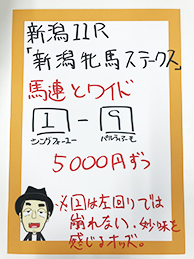 新潟11R
「新潟牝馬ステークス」
馬連とワイド
1-9
シングフォーユー
5000円ずつ
※1は左回りでは
崩れない。妙味を
感じるオッズ。